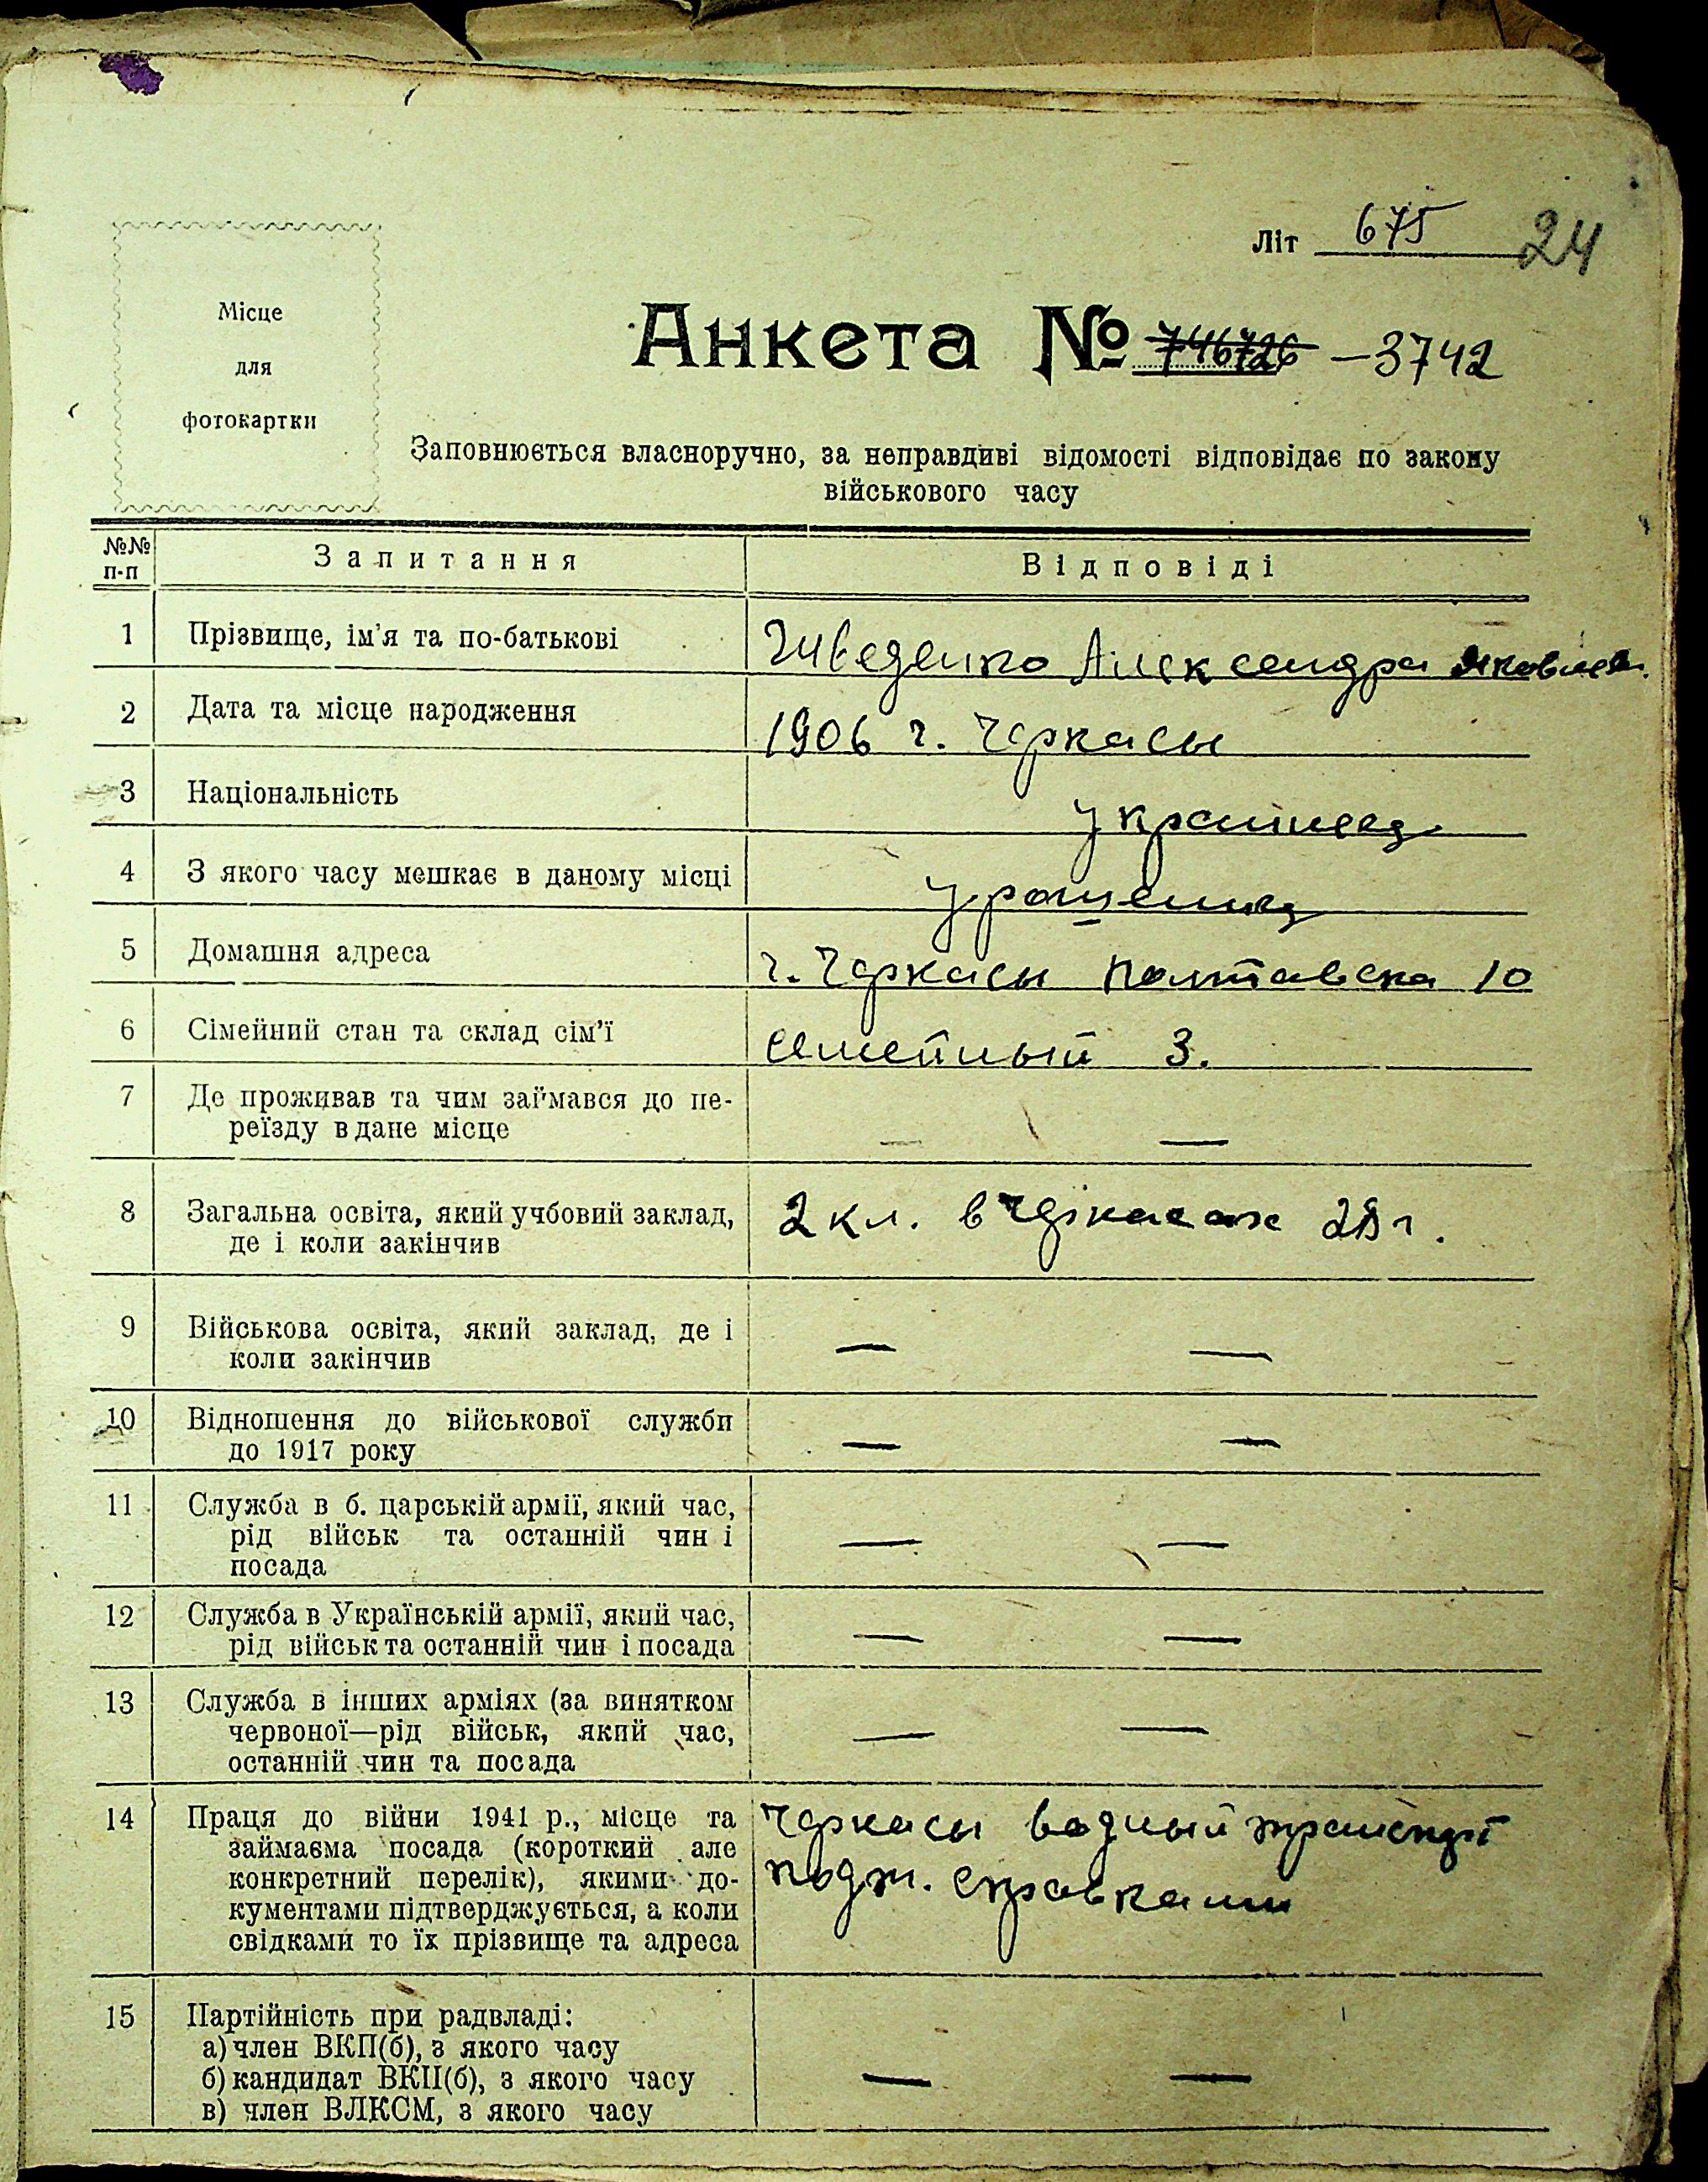 Літ 675 24
Місце
для
фотокартки
Анкета № 746726 — 3742
Заповнюється власноручно, за неправдиві відомості відповідає по закону
військового часу
№№ п-п Запитання Відповіді
1 Прізвище, ім'я та по-батькові Александра
2 Дата та місце народження 1906 г. Черкасы
3 Національність
4 З якого часу мешкає в даному місці
5 Домашня адреса г. Черкасы Полтавска 10
6 Сімейний стан та склад сім'ї семейный 3.
7 Де проживав та чим займався до пе-
реїзду в дане місце — —
8 Загальна освіта, який учбовий заклад, 2 кл. в Черкасах
де і коли закінчив
9 Військова освіта, який заклад, де і
коли закінчив — —
10 Відношення до військової служби
до 1917 року — —
11 Служба в б. царській армії, який час,
рід військ та останній чин і — —
посада
12 Служба в Українській армії, який час,
рід військ та останній чин і посада — —
13 Служба в інших арміях (за винятком
червоної—рід військ, який час, — —
останній чин та посада
14 Праця до війни 1941 р., місце та Черкасы водный транспорт
займаєма посада (короткий але
конкретний перелік), якими до- справками
кументами підтверджується, а коли
свідками то їх прізвище та адреса
15 Партійність при радвладі:
а) член ВКП(б), з якого часу
б) кандидат ВКП(б), з якого часу — —
в) член ВЛКСМ, з якого часу